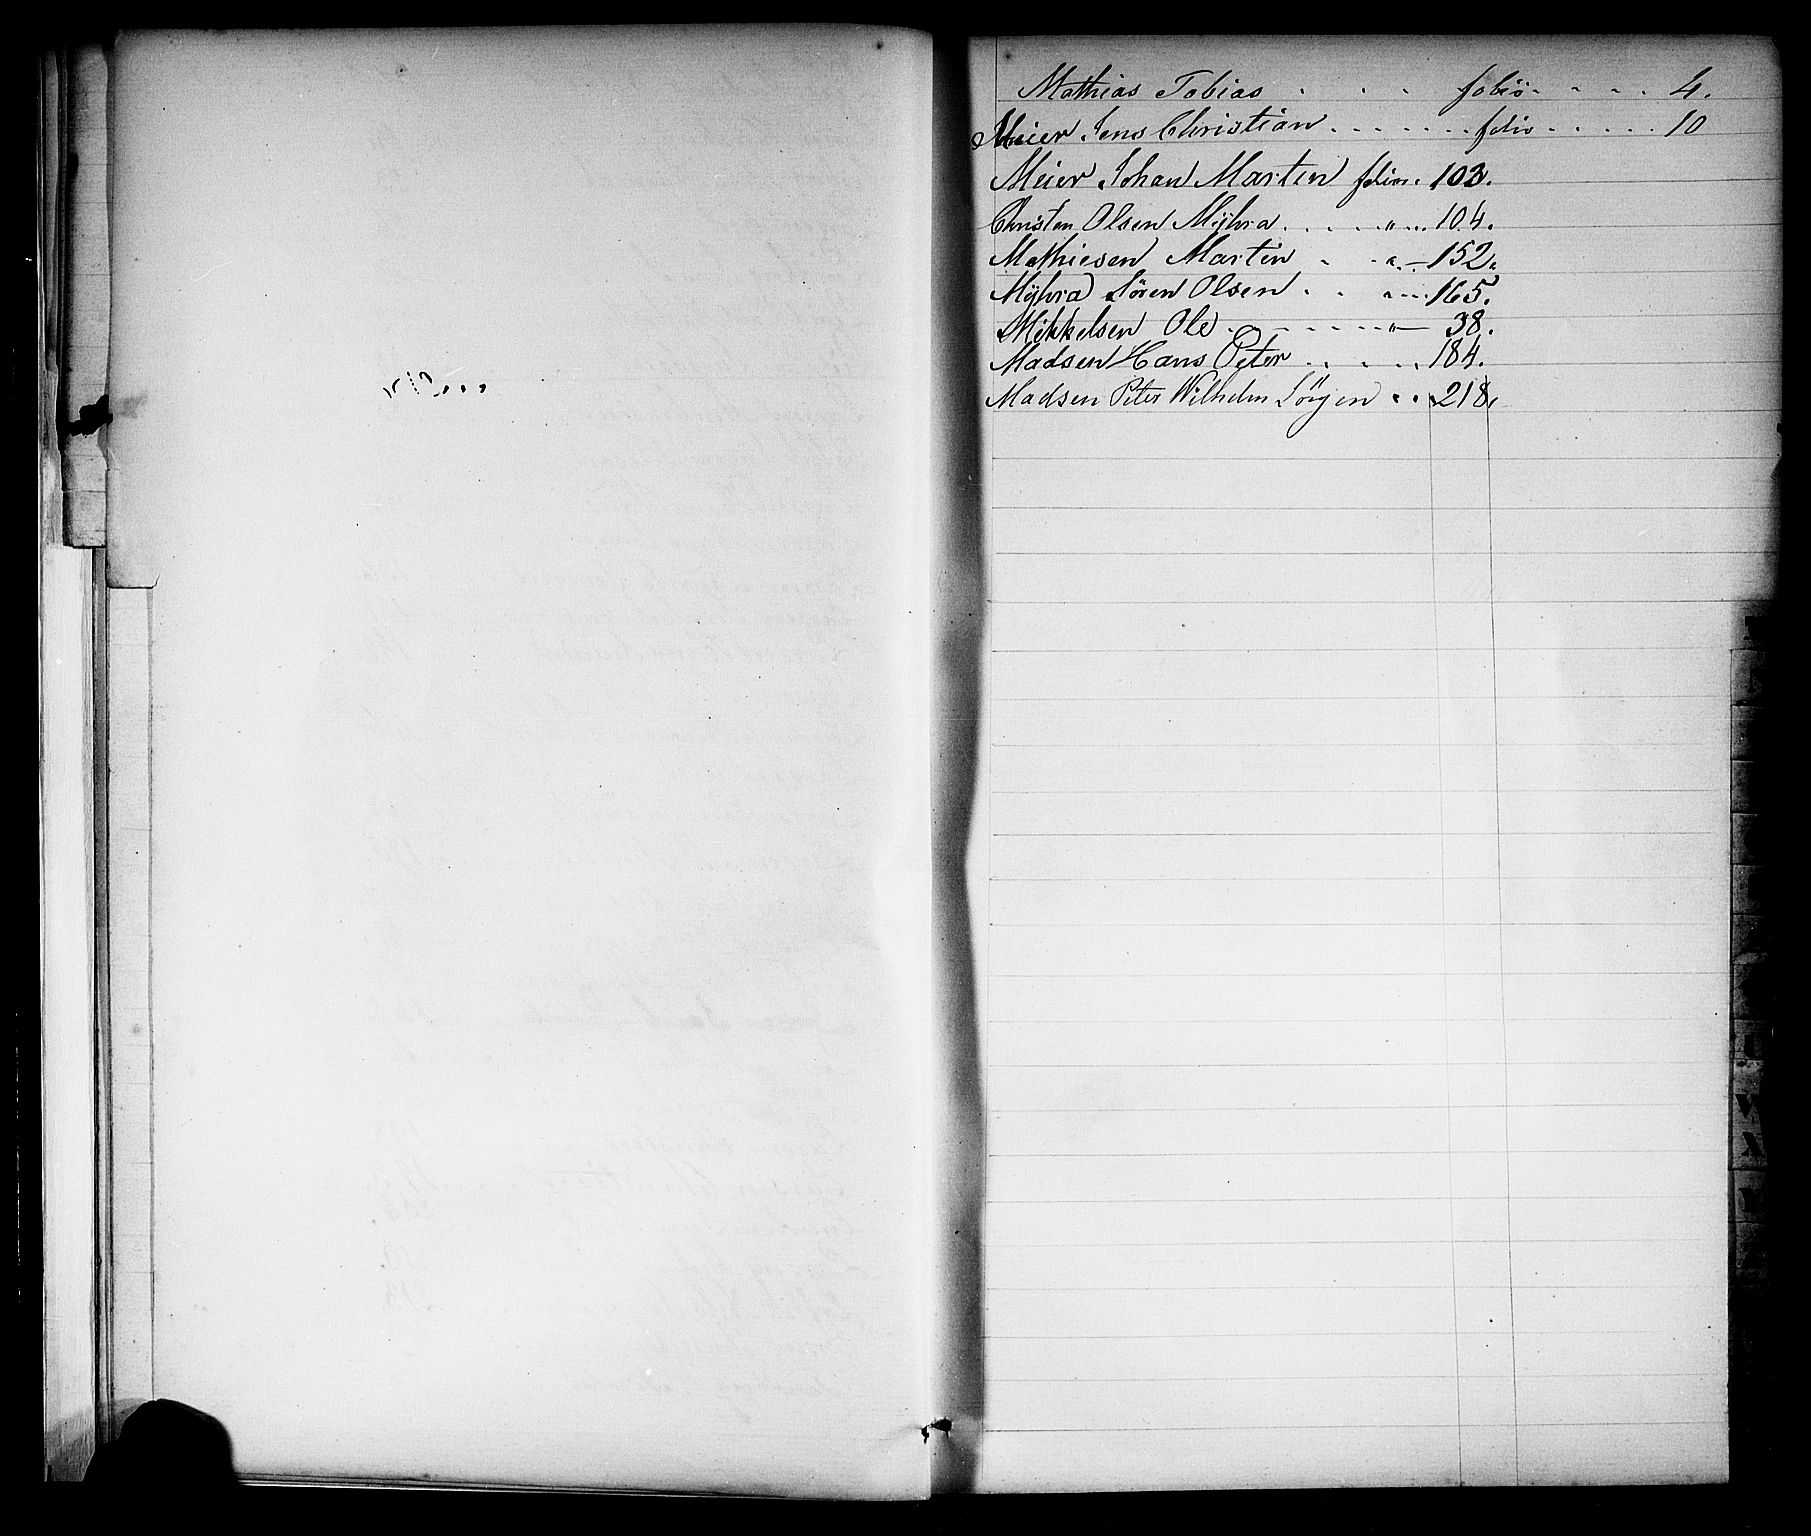 Mathias Tobias . . . folio . . . . 4.
Meier Jens Christian . . . . . . . folio . . . . . . 10
Meier Johan Martin folio . 103.
Christen Olsen Myhra . . . . . " . . . 104.
Mathiesen Martin . . " . . — 152.
Myhra Sören Olsen . . " . . . 165.
Mikkelsen Ole . . . . . . . " — 38.
Madsen Hans Peter . . . . . 184.
Madsen Peter Wilhelm Jörgen . . . 218.